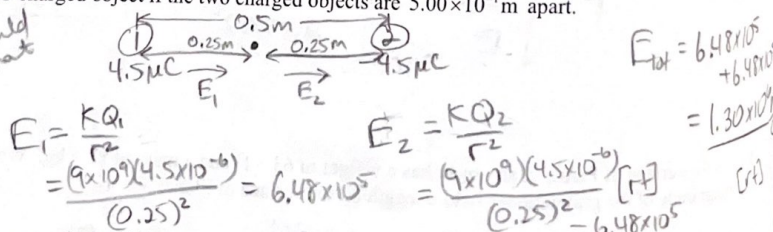 charged object if the two charged objects are 5.00×10 m apart.
at
0.5m
① 0.25m 0.25m ②
4.5μC E₁ E₂ -4.5μC
E_tot = 6.48x10⁵
+6.48x10
= 1.30x10
[rt]
E₁ = KQ₁/r²
= (9x10⁹)(4.5x10⁻⁶)/(0.25)² = 6.48x10⁵
E₂ = KQ₂/r²
= (9x10⁹)(4.5x10⁻⁶)/(0.25)² [rt]
= 6.48x10⁵